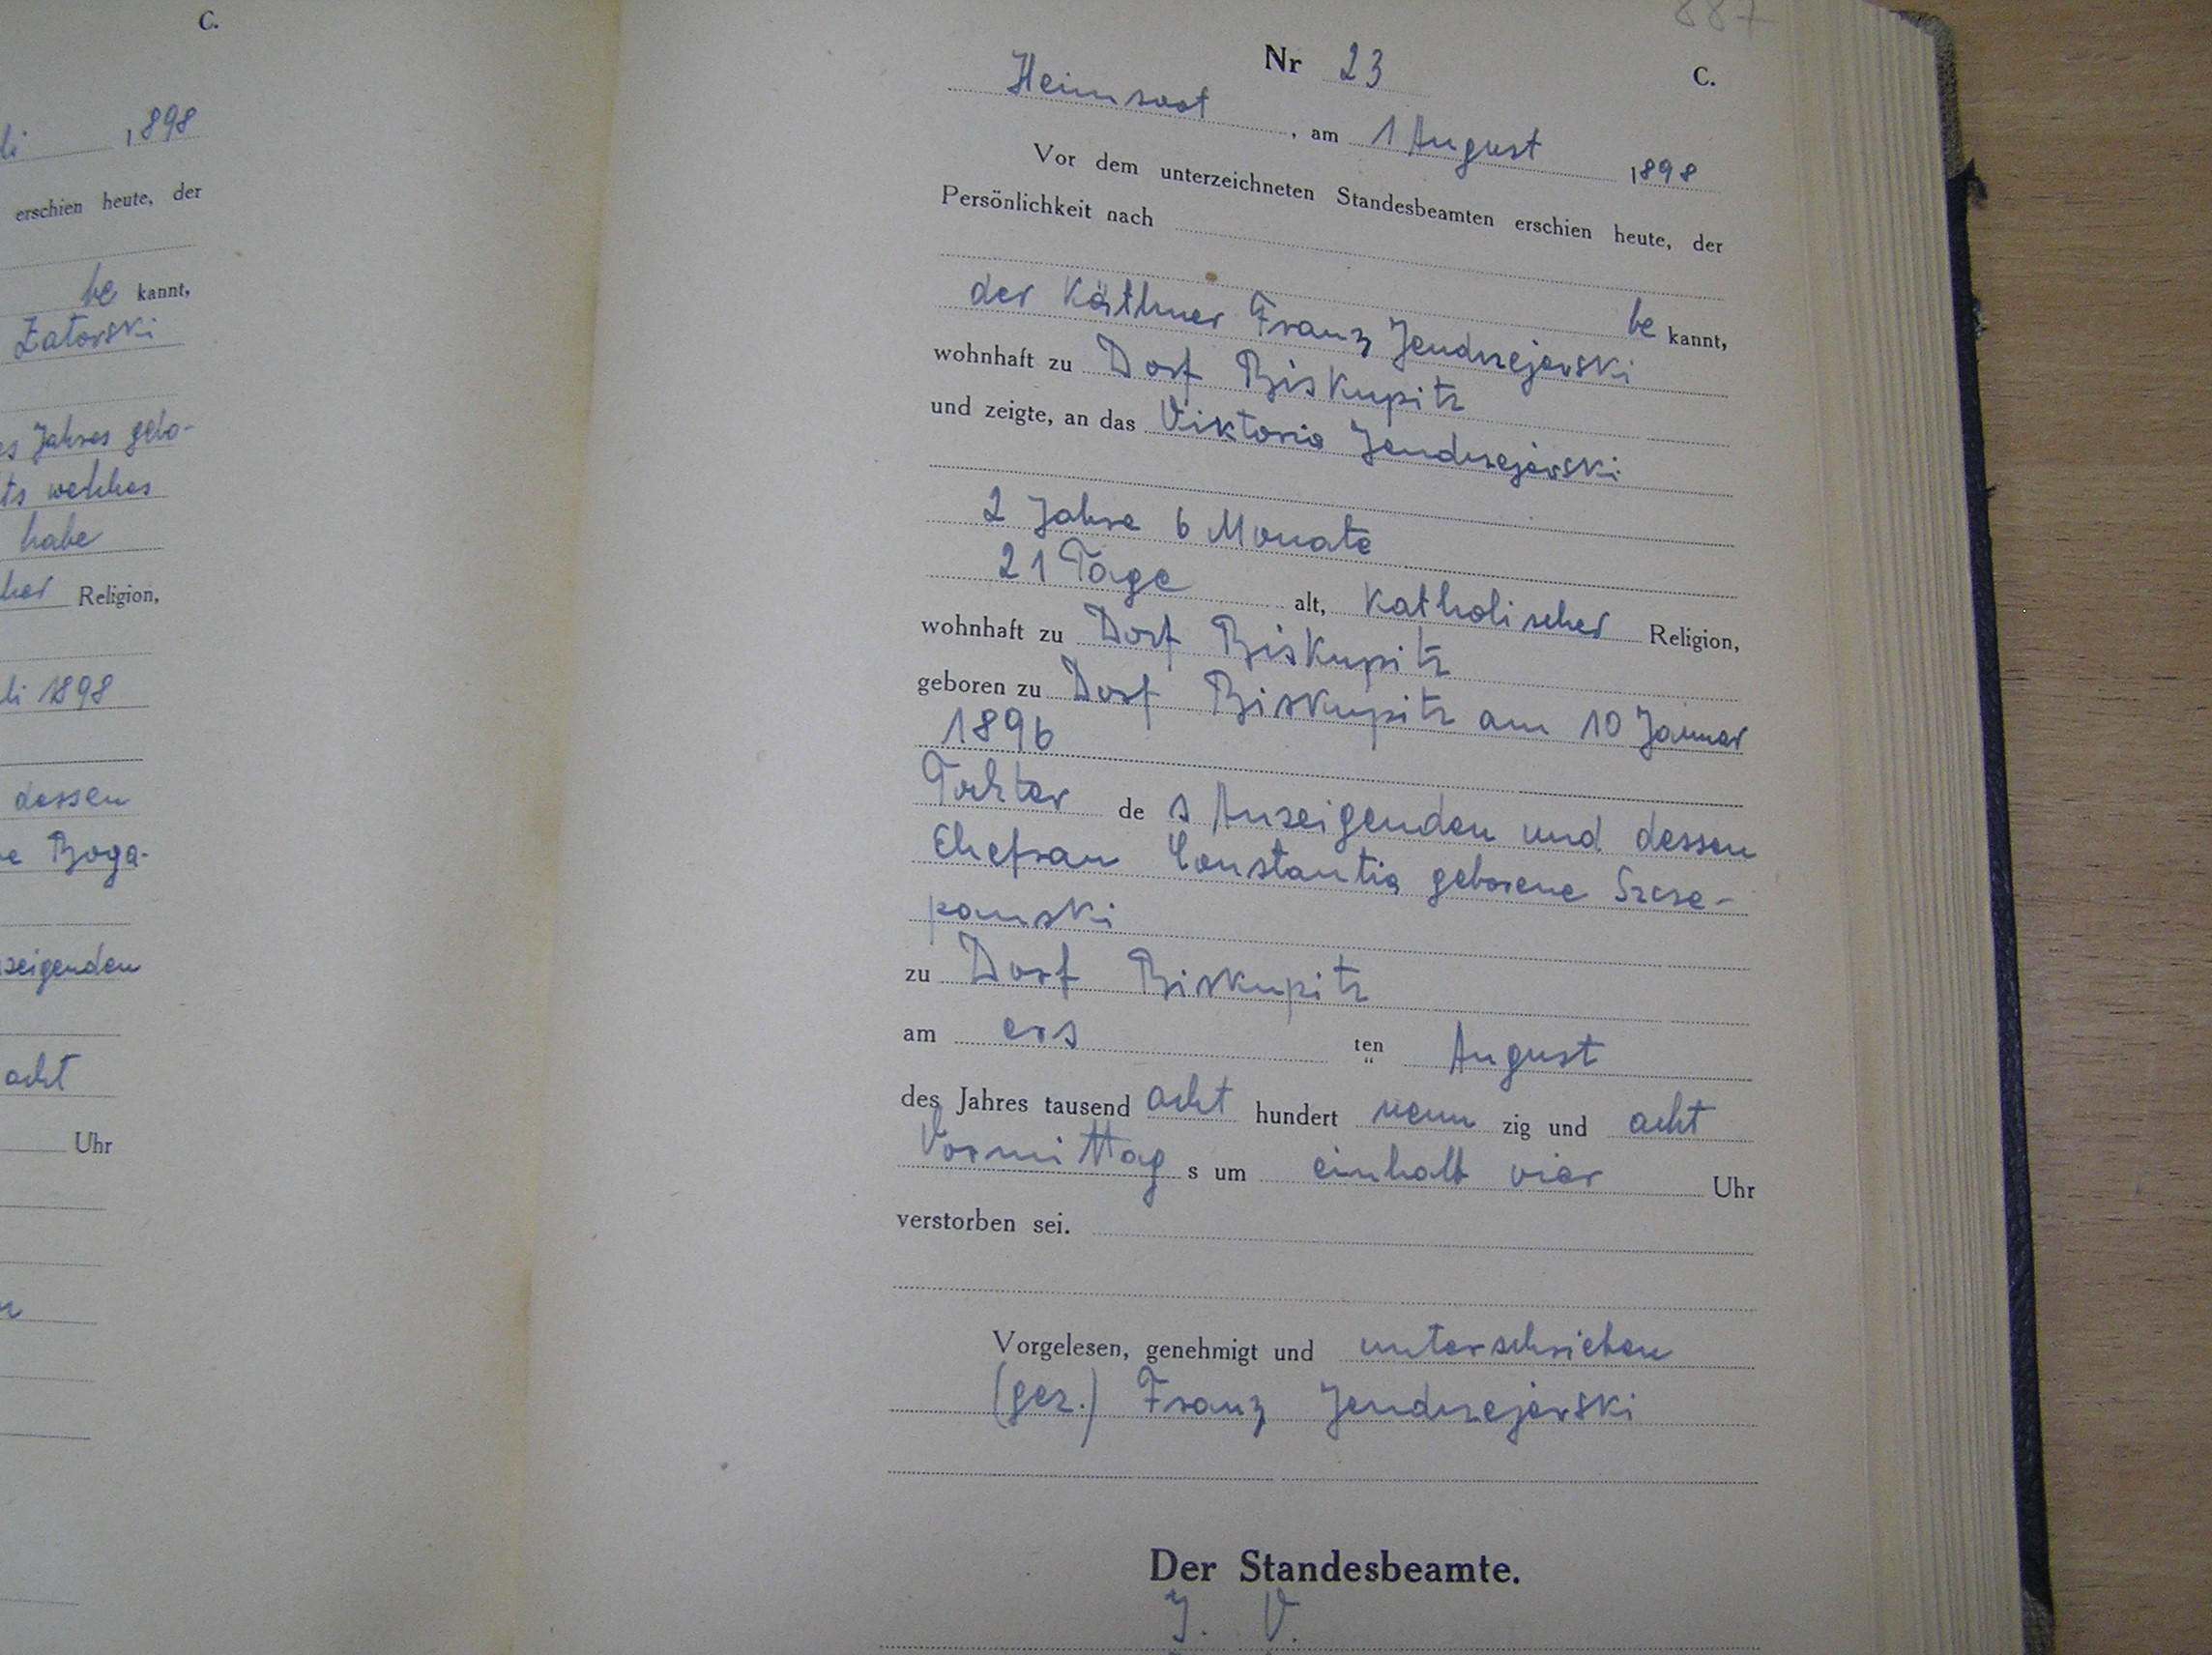 C.
li 1898
erschien heute, der
be kannt,
Zatorski
es Jahres gebo-
ts welches
habe
cher Religion,
li 1898
dessen
e Boga-
nzeigenden
acht
Uhr
887
Nr 23 C.
Heimsoot, am 1 August 1898
Vor dem unterzeichneten Standesbeamten erschien heute, der
Persönlichkeit nach
be kannt,
der Käthner Franz Jendrzejewski
wohnhaft zu Dorf Biskupitz
und zeigte, an das Viktoria Jendrzejewski
2 Jahre 6 Monate
21 Tage alt, katholischer Religion,
wohnhaft zu Dorf Biskupitz
geboren zu Dorf Biskupitz am 10 Januar
1896
Tochter de s Anzeigenden und dessen
Ehefrau Constantia geborene Szcze-
panski
zu Dorf Biskupitz
am ers ten August
des Jahres tausend acht hundert neun zig und acht
Vormittag s um einhalb vier Uhr
verstorben sei.
Vorgelesen, genehmigt und unterschrieben
(gez.) Franz Jendrzejewski
Der Standesbeamte.
J. V.